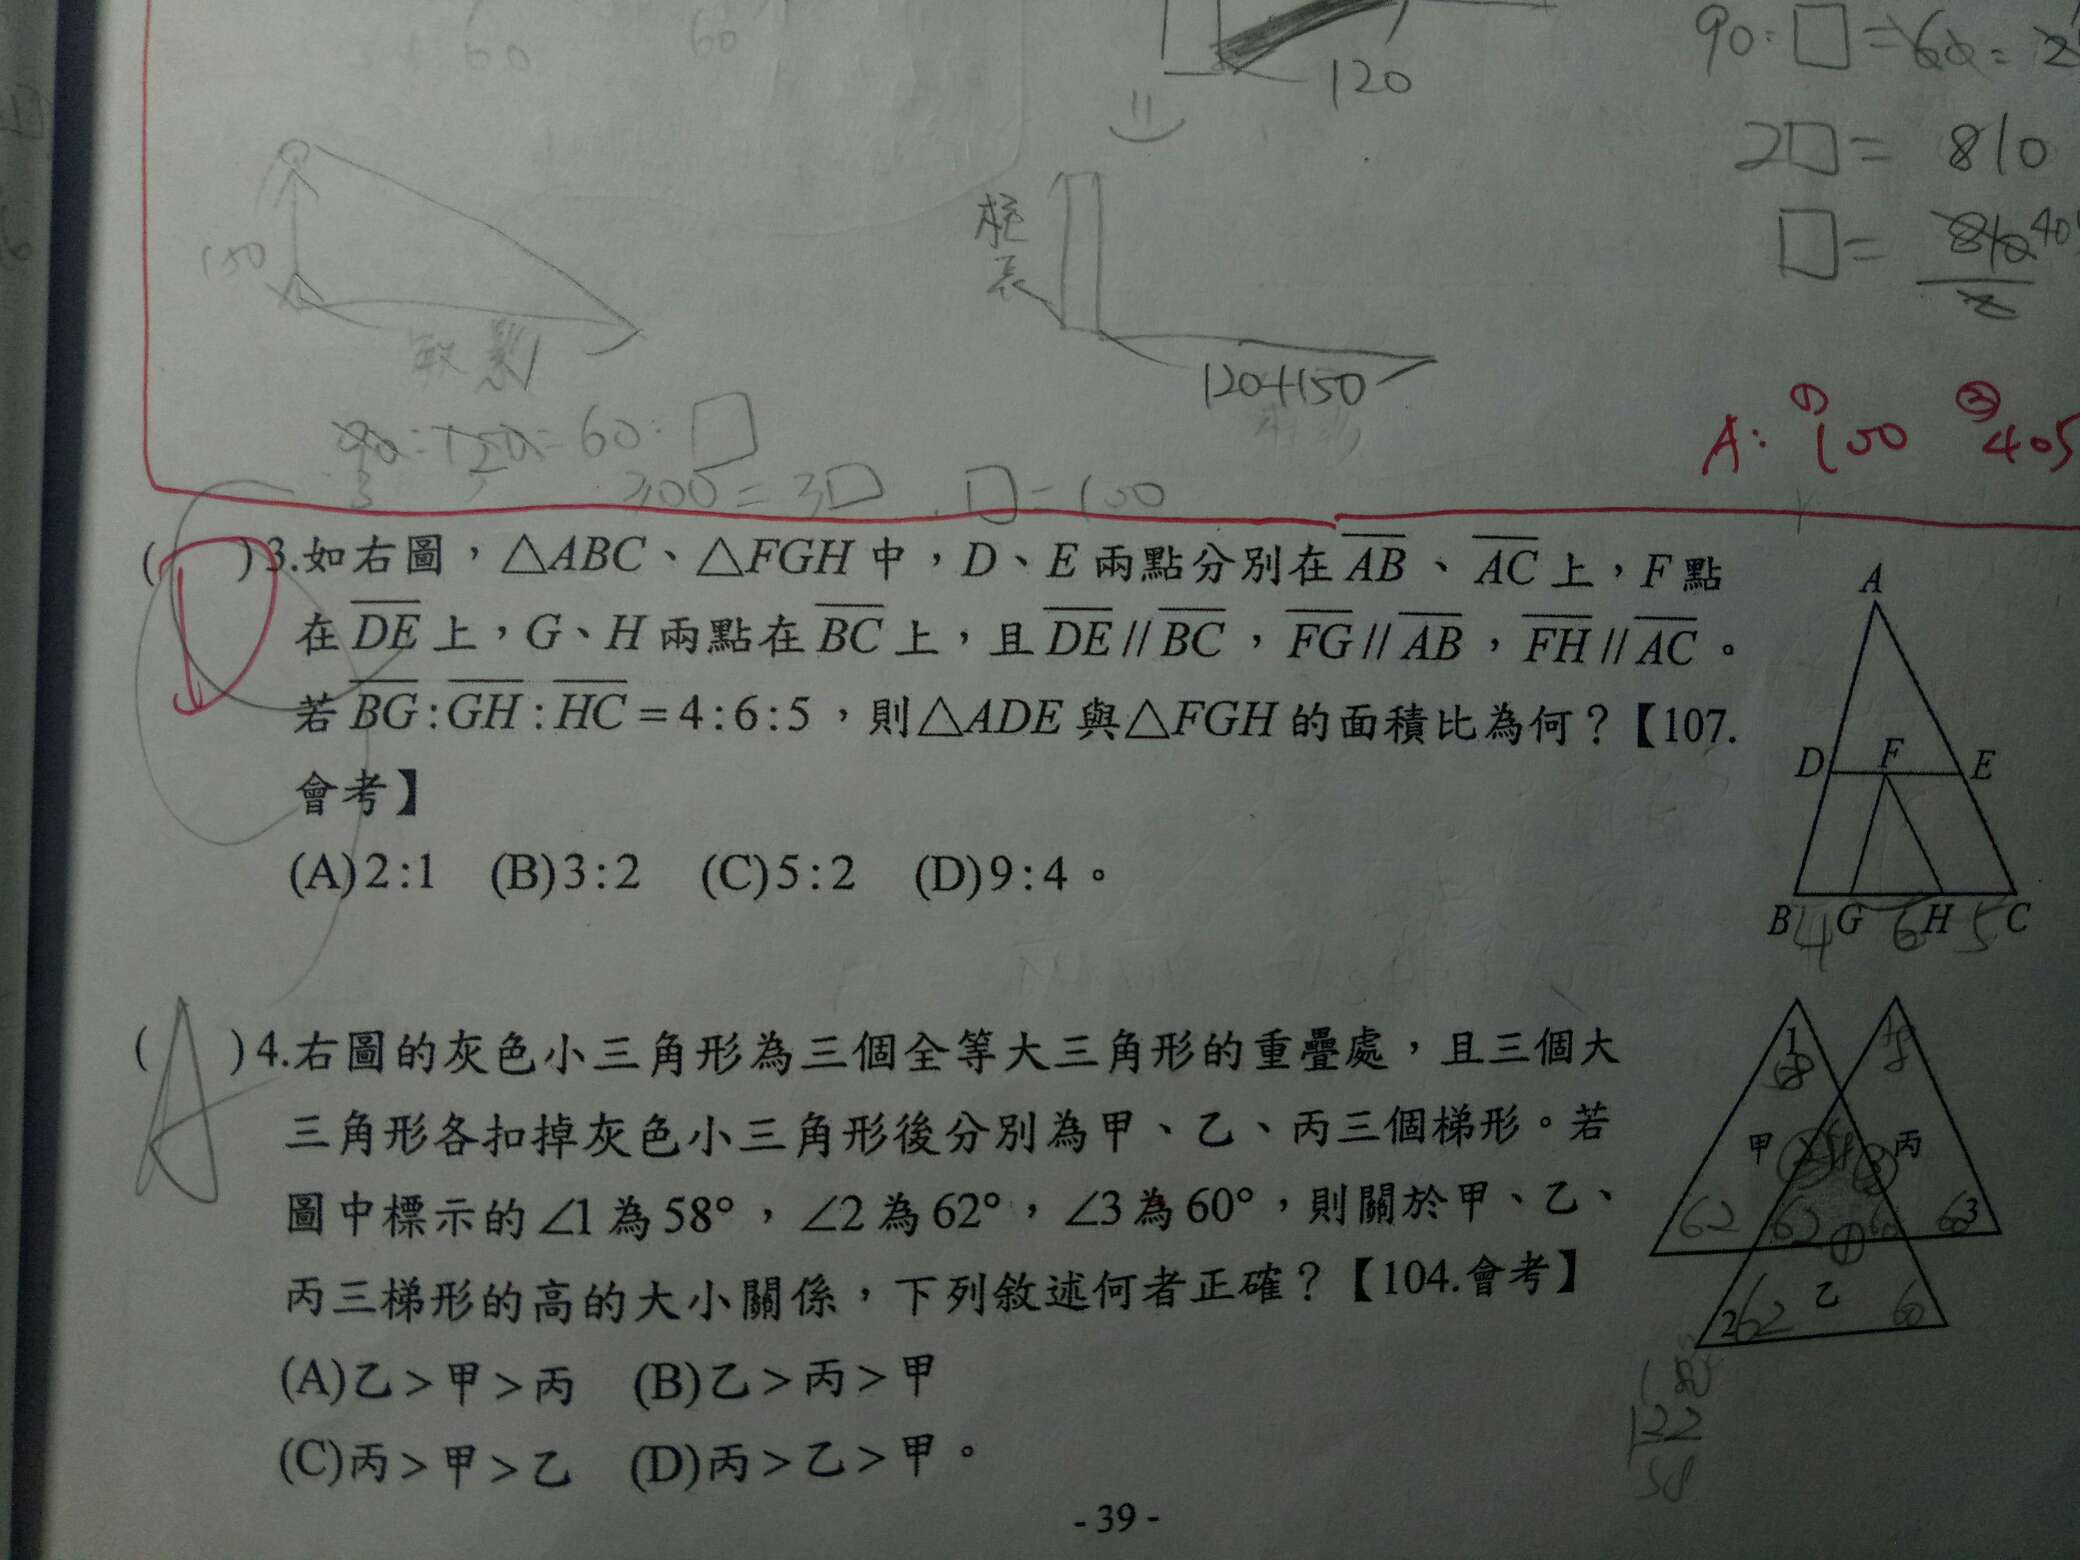 60
60
120
90:□=60=2
2□= 810
□= 810 405
2
150
柱
長
120+150
90:150=60:□
3
300=3□ □=100
A: ① 100 ② 405
( D )3.如右圖，△ABC、△FGH中，D、E兩點分別在AB、AC上，F點
在DE上，G、H兩點在BC上，且DE//BC，FG//AB，FH//AC。
若BG:GH:HC=4:6:5，則△ADE與△FGH的面積比為何？【107.
會考】
(A)2:1 (B)3:2 (C)5:2 (D)9:4。
A
D F E
B G H C
4 6 5
( A )4.右圖的灰色小三角形為三個全等大三角形的重疊處，且三個大
三角形各扣掉灰色小三角形後分別為甲、乙、丙三個梯形。若
圖中標示的∠1為58°，∠2為62°，∠3為60°，則關於甲、乙、
丙三梯形的高的大小關係，下列敘述何者正確？【104.會考】
(A)乙>甲>丙 (B)乙>丙>甲
(C)丙>甲>乙 (D)丙>乙>甲。
1
58
甲 2 58 3 丙
62 62 60 60 3
1
2 62 乙 60
180
122
58
- 39 -